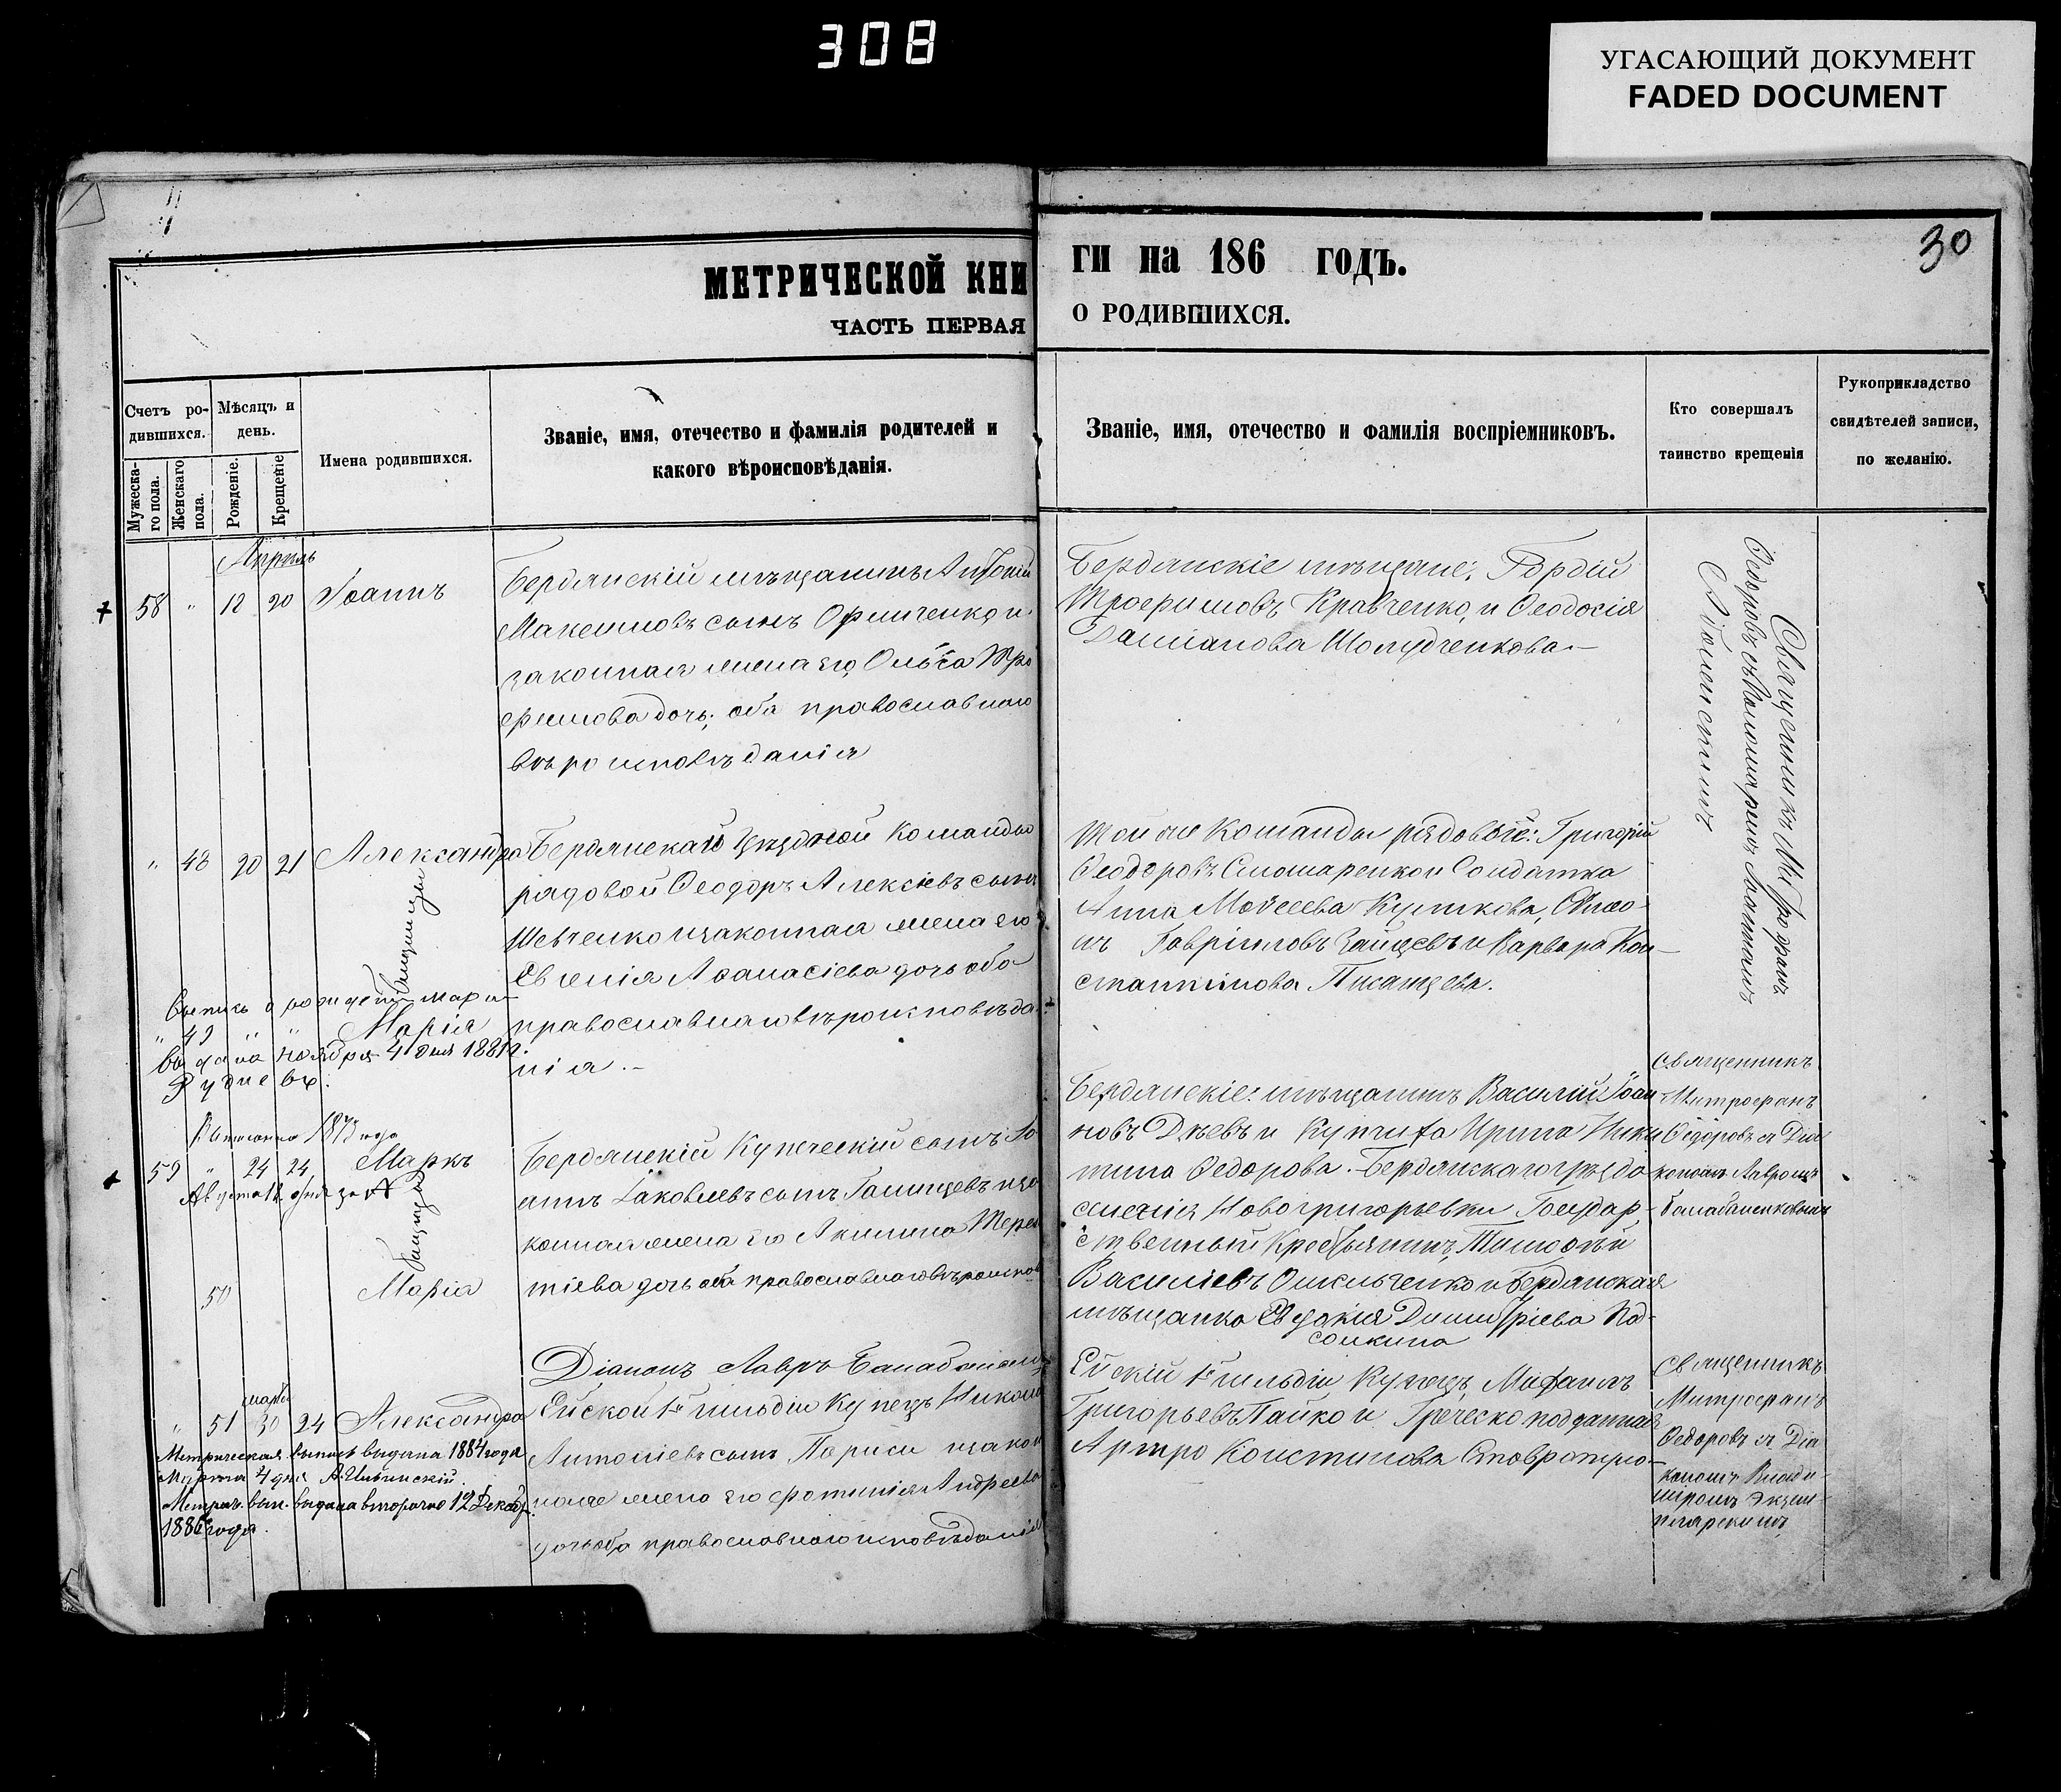 308
УГАСАЮЩИЙ ДОКУМЕНТ
FADED DOCUMENT
30
МЕТРИЧЕСКОЙ КНИ
ГИ на 186 годъ.
ЧАСТЬ ПЕРВАЯ
О РОДИВШИХСЯ.
Счетъ ро-
дившихся.
Мужеска-
го пола.
Женскаго
пола.
Мѣсяцъ и
день.
Рожденіе.
Крещеніе
Имена родившихся.
Званіе, имя, отечество и фамилія родителей и
какого вѣроисповѣданія.
Званіе, имя, отечество и фамилія воспріемниковъ.
Кто совершалъ
таинство крещенія
Рукоприкладство
свидѣтелей записи,
по желанію.
Апрель
58 " 12 20 Іоаннъ
Бердянскій мѣщанинъ Антоній
Максимовъ сынъ и
законная жена его, Ольга Тро
фимова дочь; оба православнаго
вѣроисповѣданія
Бердянскіе мѣщане: Гордій
Трофимовъ Кравченко, и Феодосія
Шолудченкова.—
Священникъ Митрофанъ
Федоровъ съ Іоанномъ
" 48 20 21 Александра
Близнецы
Бердянской Уѣздной Команды
рядовой Феодоръ Алексіевъ сынъ
Шевченко и законная жена его
Евгенія Афанасіева дочь оба
православнаго вѣроисповѣда-
нія.—
Той же Команды рядовые: Григорій
Феодоровъ и Солдатка
Анна Моисеева Куликова,
Гавріиловъ Зайцевъ и Варвара Кон-
стантинова Писанцева.
Выпись о рожденіи Маріи
" 49 " " Марія
выдана ноября 4 дня 1881 г.
Руднев
59 " 24 24 Маркъ
Августа
Близнецы
50 Марія
Бердянскій Купеческій сынъ Іо
аннъ Іаковлевъ сынъ и за
конная жена его Акилина Терен
тіева дочь оба православнаго вѣроиспов
Бердянскіе: мѣщанинъ Василій Іоан
новъ и Купчиха Ирина Ники
тина Федорова. Бердянскаго уѣзда
селенія Новогригорьевки Государ
ственный Крестьянинъ, Тимофѣй
Василіевъ Омельченко и Бердянская
мѣщанка Евдокія Димитріева
Священникъ
Митрофанъ
Федоровъ съ Діа
кономъ Лавромъ
Балабаненковымъ
Діаконъ Лавръ
марта
" 51 30 24 Александра
Ейской 1й гильдіи Купецъ Никола
Антоніевъ сынъ Париси и закон
ная жена его Фотинія Андреева
дочь оба православнаго исповѣданія
Ейскій 1й гильдіи Купецъ Михаилъ
Григорьевъ Пайко и Греческо подданная
Константинова
Священникъ
Митрофанъ
Федоровъ съ Діа
кономъ Влади-
міромъ Экзем-
плярскимъ
Метрическая выпись выдана 1884 года
Марта 4 дня
Метрич. вып. выдана вторично 12 Декабр.
1886 года.